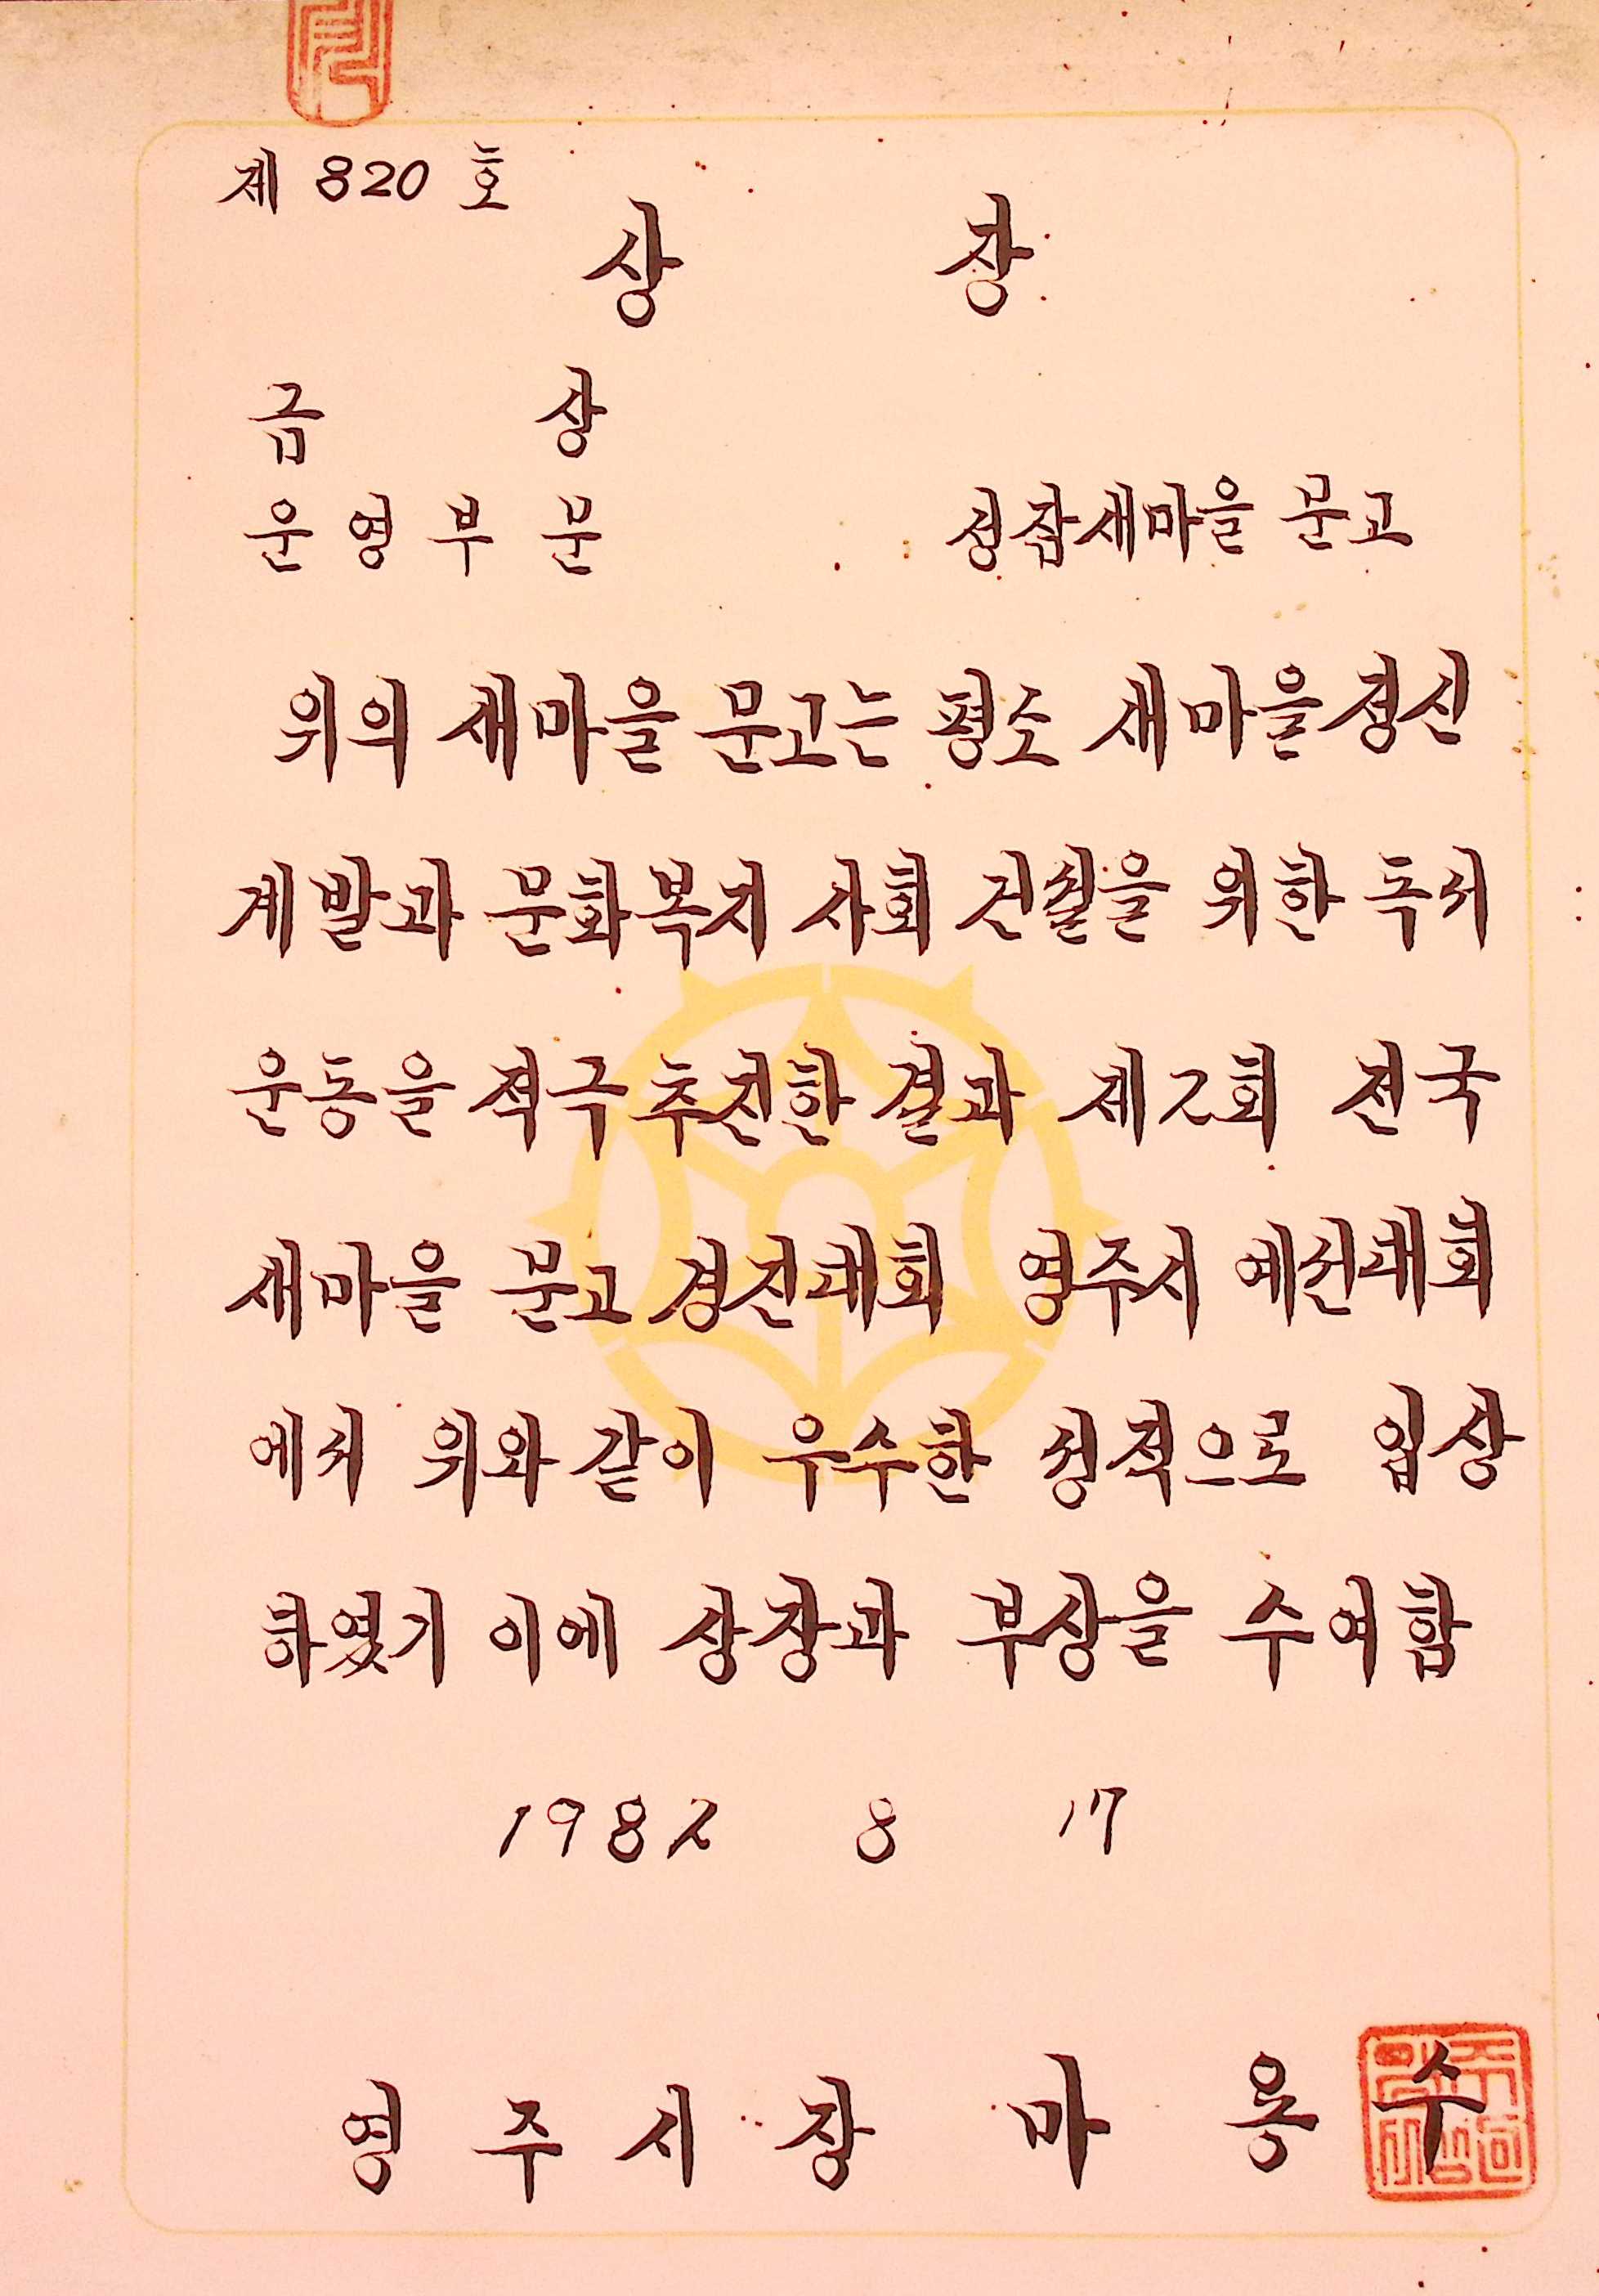 제 820 호
상 장
금 상
운영부문 성잠새마을 문고
위의 새마을 문고는 평소 새마을정신
계발과 문화복지 사회 건설을 위한 독서
운동을 적극 추진한 결과 제2회 전국
새마을 문고 경진대회 영주시 예선대회
에서 위와 같이 우수한 성적으로 입상
하였기 이에 상장과 부상을 수여함
1982 8 17
영주시장 마용수